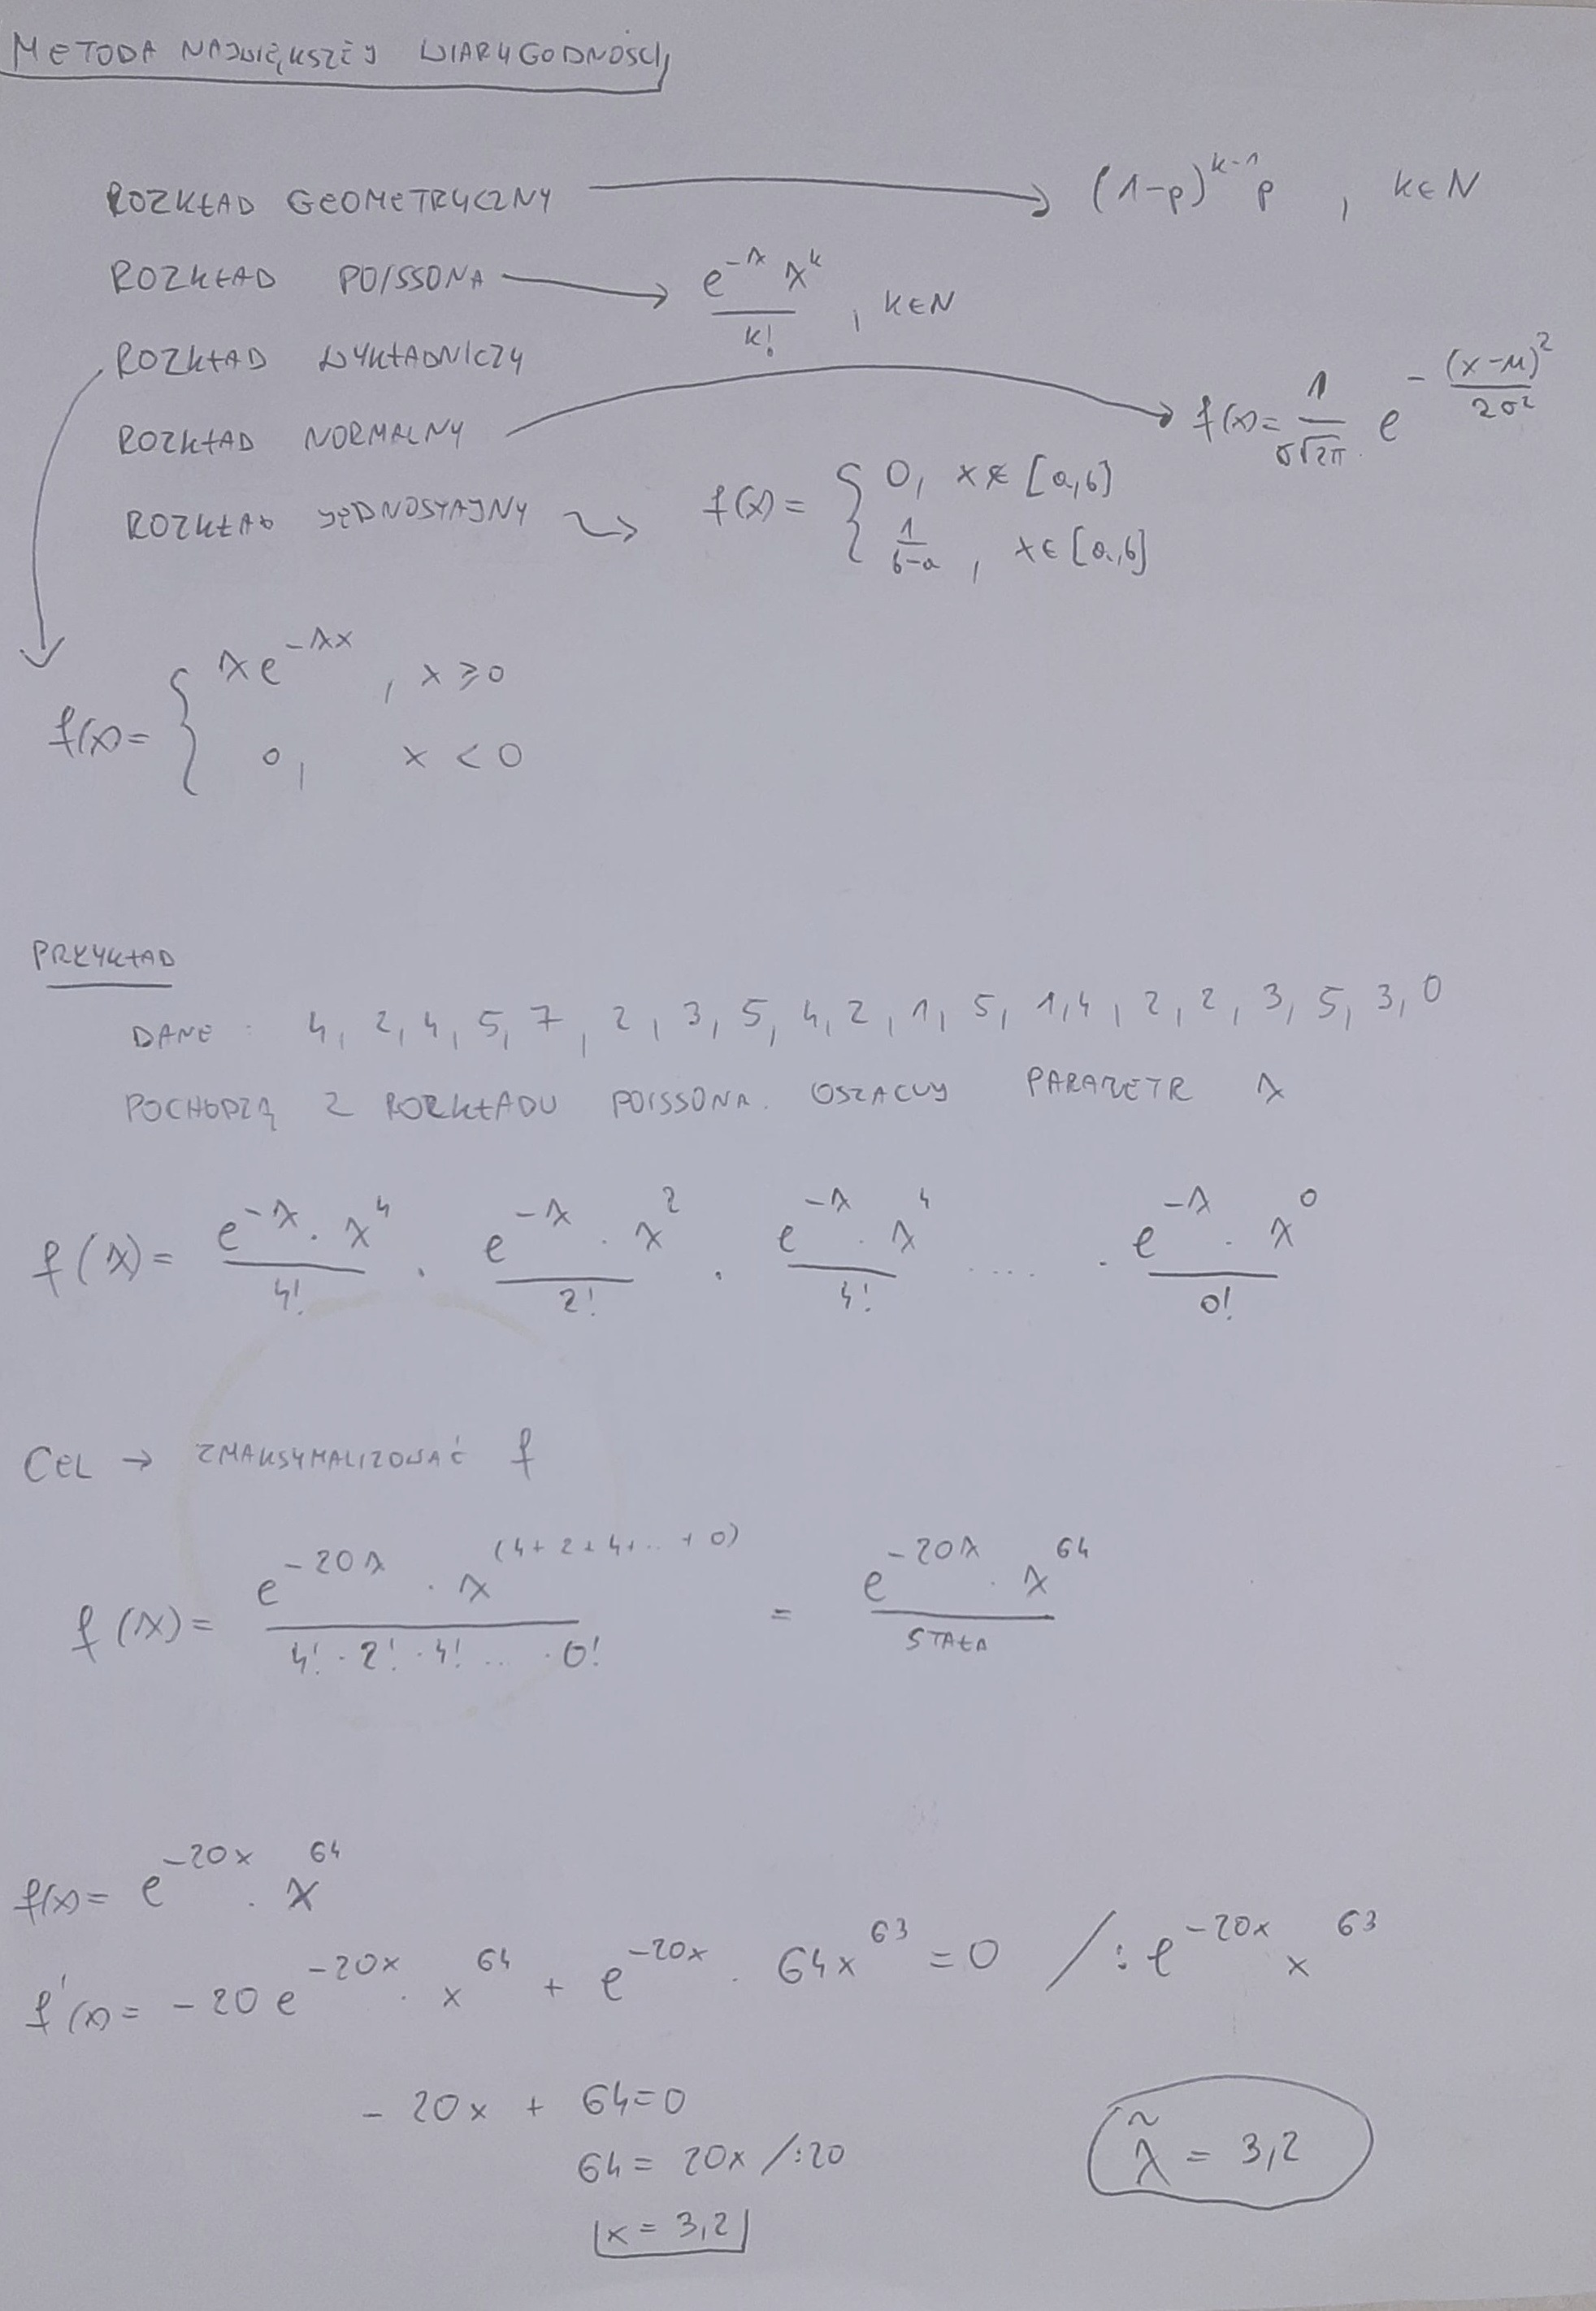 METODA NAJWIĘKSZEJ WIARYGODNOŚCI
ROZKŁAD GEOMETRYCZNY → (1-p)^{k-1} p , k∈N
ROZKŁAD POISSONA → \frac{e^{-λ} λ^k}{k!} , k∈N
ROZKŁAD WYKŁADNICZY
ROZKŁAD NORMALNY → f(x)= \frac{1}{σ√2π} e^{-\frac{(x-μ)^2}{2σ^2}}
ROZKŁAD JEDNOSTAJNY → f(x)= { 0, x∉[a,b]
\frac{1}{b-a} , x∈[a,b]
f(x)= { λe^{-λx} , x⩾0
0, x<0
PRZYKŁAD
DANE : 4, 2, 4, 5, 7, 2, 3, 5, 4, 2, 1, 5, 1, 4, 2, 2, 3, 5, 3, 0
POCHODZĄ Z ROZKŁADU POISSONA. OSZACUJ PARAMETR λ
f(λ)= \frac{e^{-λ}·λ^4}{4!} · \frac{e^{-λ}·λ^2}{2!} · \frac{e^{-λ}·λ^4}{4!} .... · \frac{e^{-λ}·λ^0}{0!}
CEL → ZMAKSYMALIZOWAĆ f
f(λ)= \frac{e^{-20λ}·λ^{(4+2+4+...+0)}}{4!·2!·4!...·0!} = \frac{e^{-20λ}·λ^{64}}{STAŁA}
f(x)= e^{-20x}·x^{64}
f'(x)= -20e^{-20x}·x^{64} + e^{-20x}·64x^{63} =0 /:e^{-20x} x^{63}
-20x + 64=0
64= 20x /:20
x = 3,2
λ̃ = 3,2